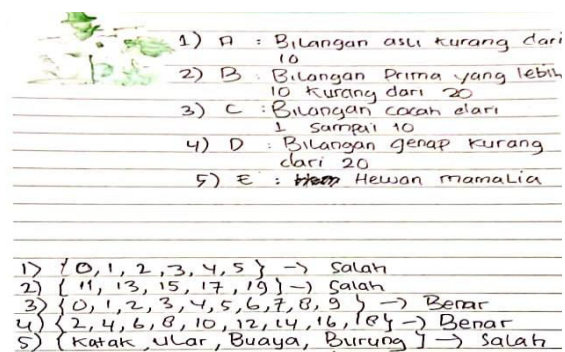 1) A : Bilangan asli kurang dari
10
2) B : Bilangan Prima yang lebih
10 kurang dari 20
3) C : Bilangan cacah dari
1 sampai 10
4) D : Bilangan genap kurang
dari 20
5) E : Hewan mamalia
1) {0, 1, 2, 3, 4, 5} -> Salah
2) { 11, 13, 15, 17, 19} -> Salah
3) {0, 1, 2, 3, 4, 5, 6, 7, 8, 9 } -> Benar
4) {2, 4, 6, 8, 10, 12, 14, 16, 18} -> Benar
5) {Katak, Ular, Buaya, Burung } -> Salah